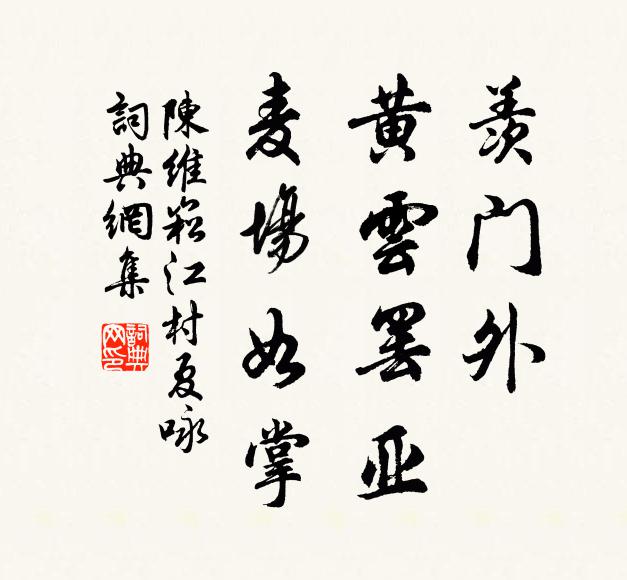 羨门外
黄雲罢亚
麦場如掌
陳維崧江村夏咏
詞典網集
詞典网印